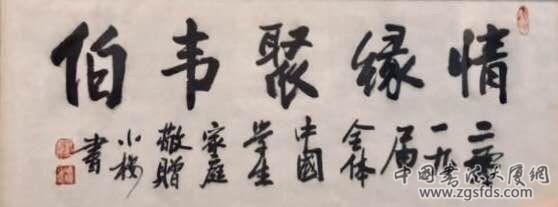 情緣聚韦伯
二零
一九
届
全体
中國
学生
家庭
敬赠
小梅
書
中国书法大厦网
www.zgsfds.com